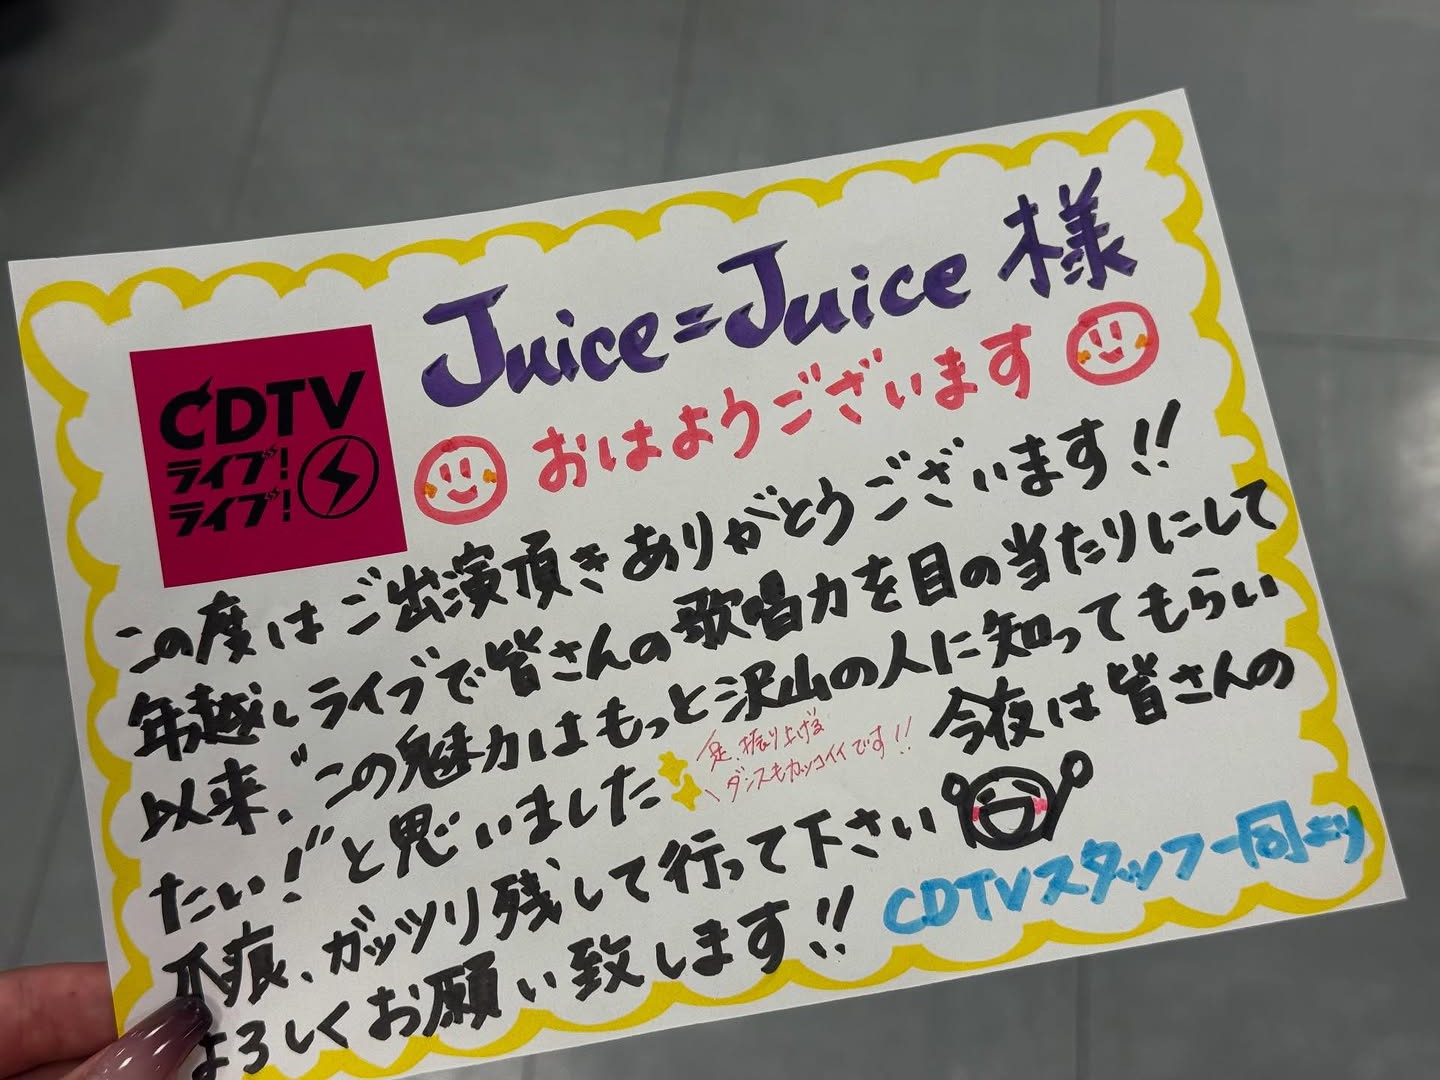 Juice=Juice 様
CDTV
ライブ!
ライブ!
おはようございます
この度はご出演頂きありがとうございます!!
年越しライブで皆さんの歌唱力を目の当たりにして
以来、"この魅力はもっと沢山の人に知ってもらい
たい!"と思いました
足、振り上げる
ダンスもカッコイイです!!
今夜は皆さんの
爪痕、ガッツリ残して行って下さい
よろしくお願い致します!!
CDTVスタッフ一同より